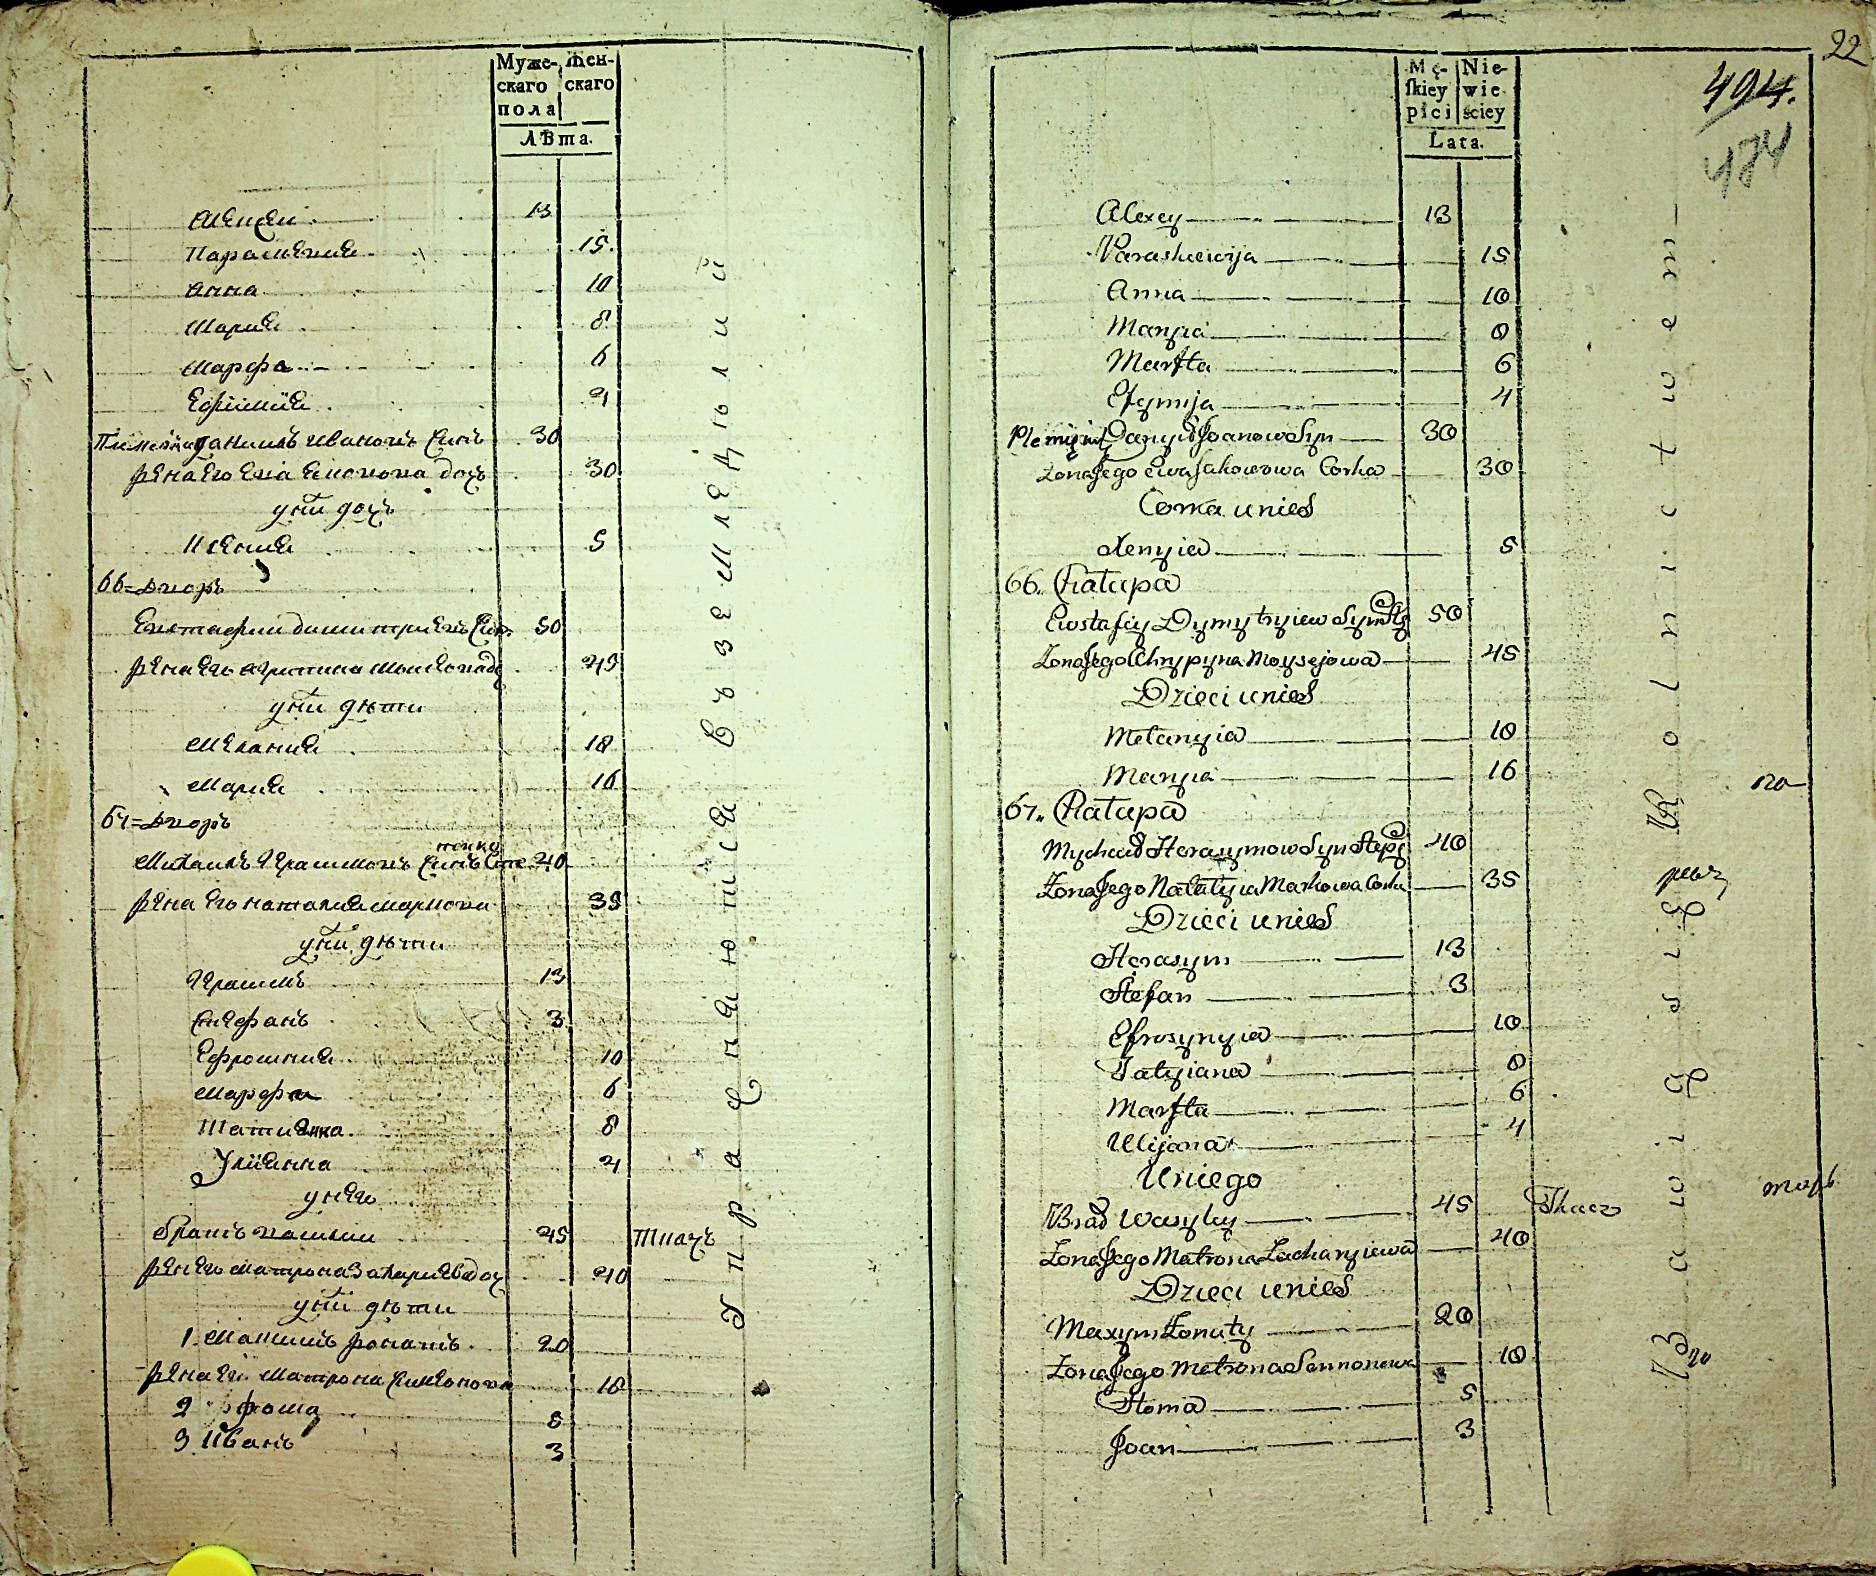 Муже-
скаго
пола
Жен-
скаго
Лѣта.
Алексеи 13
Параскевия 15
Анна 10
Мария 8
Марфа 6
Ефимия 4
Племѣникъ Данилъ Ивановъ синъ 30
Жена его Ева дочъ 30
у них дочъ
Ксения 5
66 = Дворъ
Евстафии Димитриевъ Синъ 50
Жена его Христина 45
у них дѣти
Мелания 18
Мария 16
67 = Дворъ
Михаилъ Герасимовъ Синъ 40
Жена его Наталия Маркова 35
у них дѣти
Герасимъ 13
Стефанъ 3
Ефросиния 10
Марфа 6
Татиянна 8
Улиянна 4
у него
братъ Василии 45 Ткачъ
Жена его Матрона Захариева доч 40
у них дѣти
1. Максимъ Жонатъ 20
Жена его Матрона Симеонова 18
2 Фома 8
3 Иванъ 3
Упражнаются въ земледѣлии
22
494.
474
Mę-
skiey
płci
Nie-
wie-
ściey
Lata.
Alexey 13
Paraskewija 15
Anna 10
Maryia 8
Marfta 6
Efymija 4
Plemięnik Danyło Joanow Syn 30
Zona Jego Ewa Jakowowa Corka 30
Corka u nich
Xenyia 5
66. Chałupa
Ewstafiy Dymytryiew Syn 50
Zona Jego Chrypyna Moysejowa 45
Dzieci u nich
Melanyia 18
Maryia 16
67. Chałupa
Mychaił Herasymow Syn 40
Zona Jego Natalyia Markowa Corka 35
Dzieci u nich
Herasym 13
Stefan 3
Efrosynyia 10
Tatyiana 8
Marfta 6
Ulijana 4
U niego
Brat Wasyly 45 Tkacz
Zona Jego Matrona Zacharyiewa 40
Dzieci u nich
Maxym Zonaty 20
Zona Jego Matrona Semonowa 18
Homa 8
Joan 3